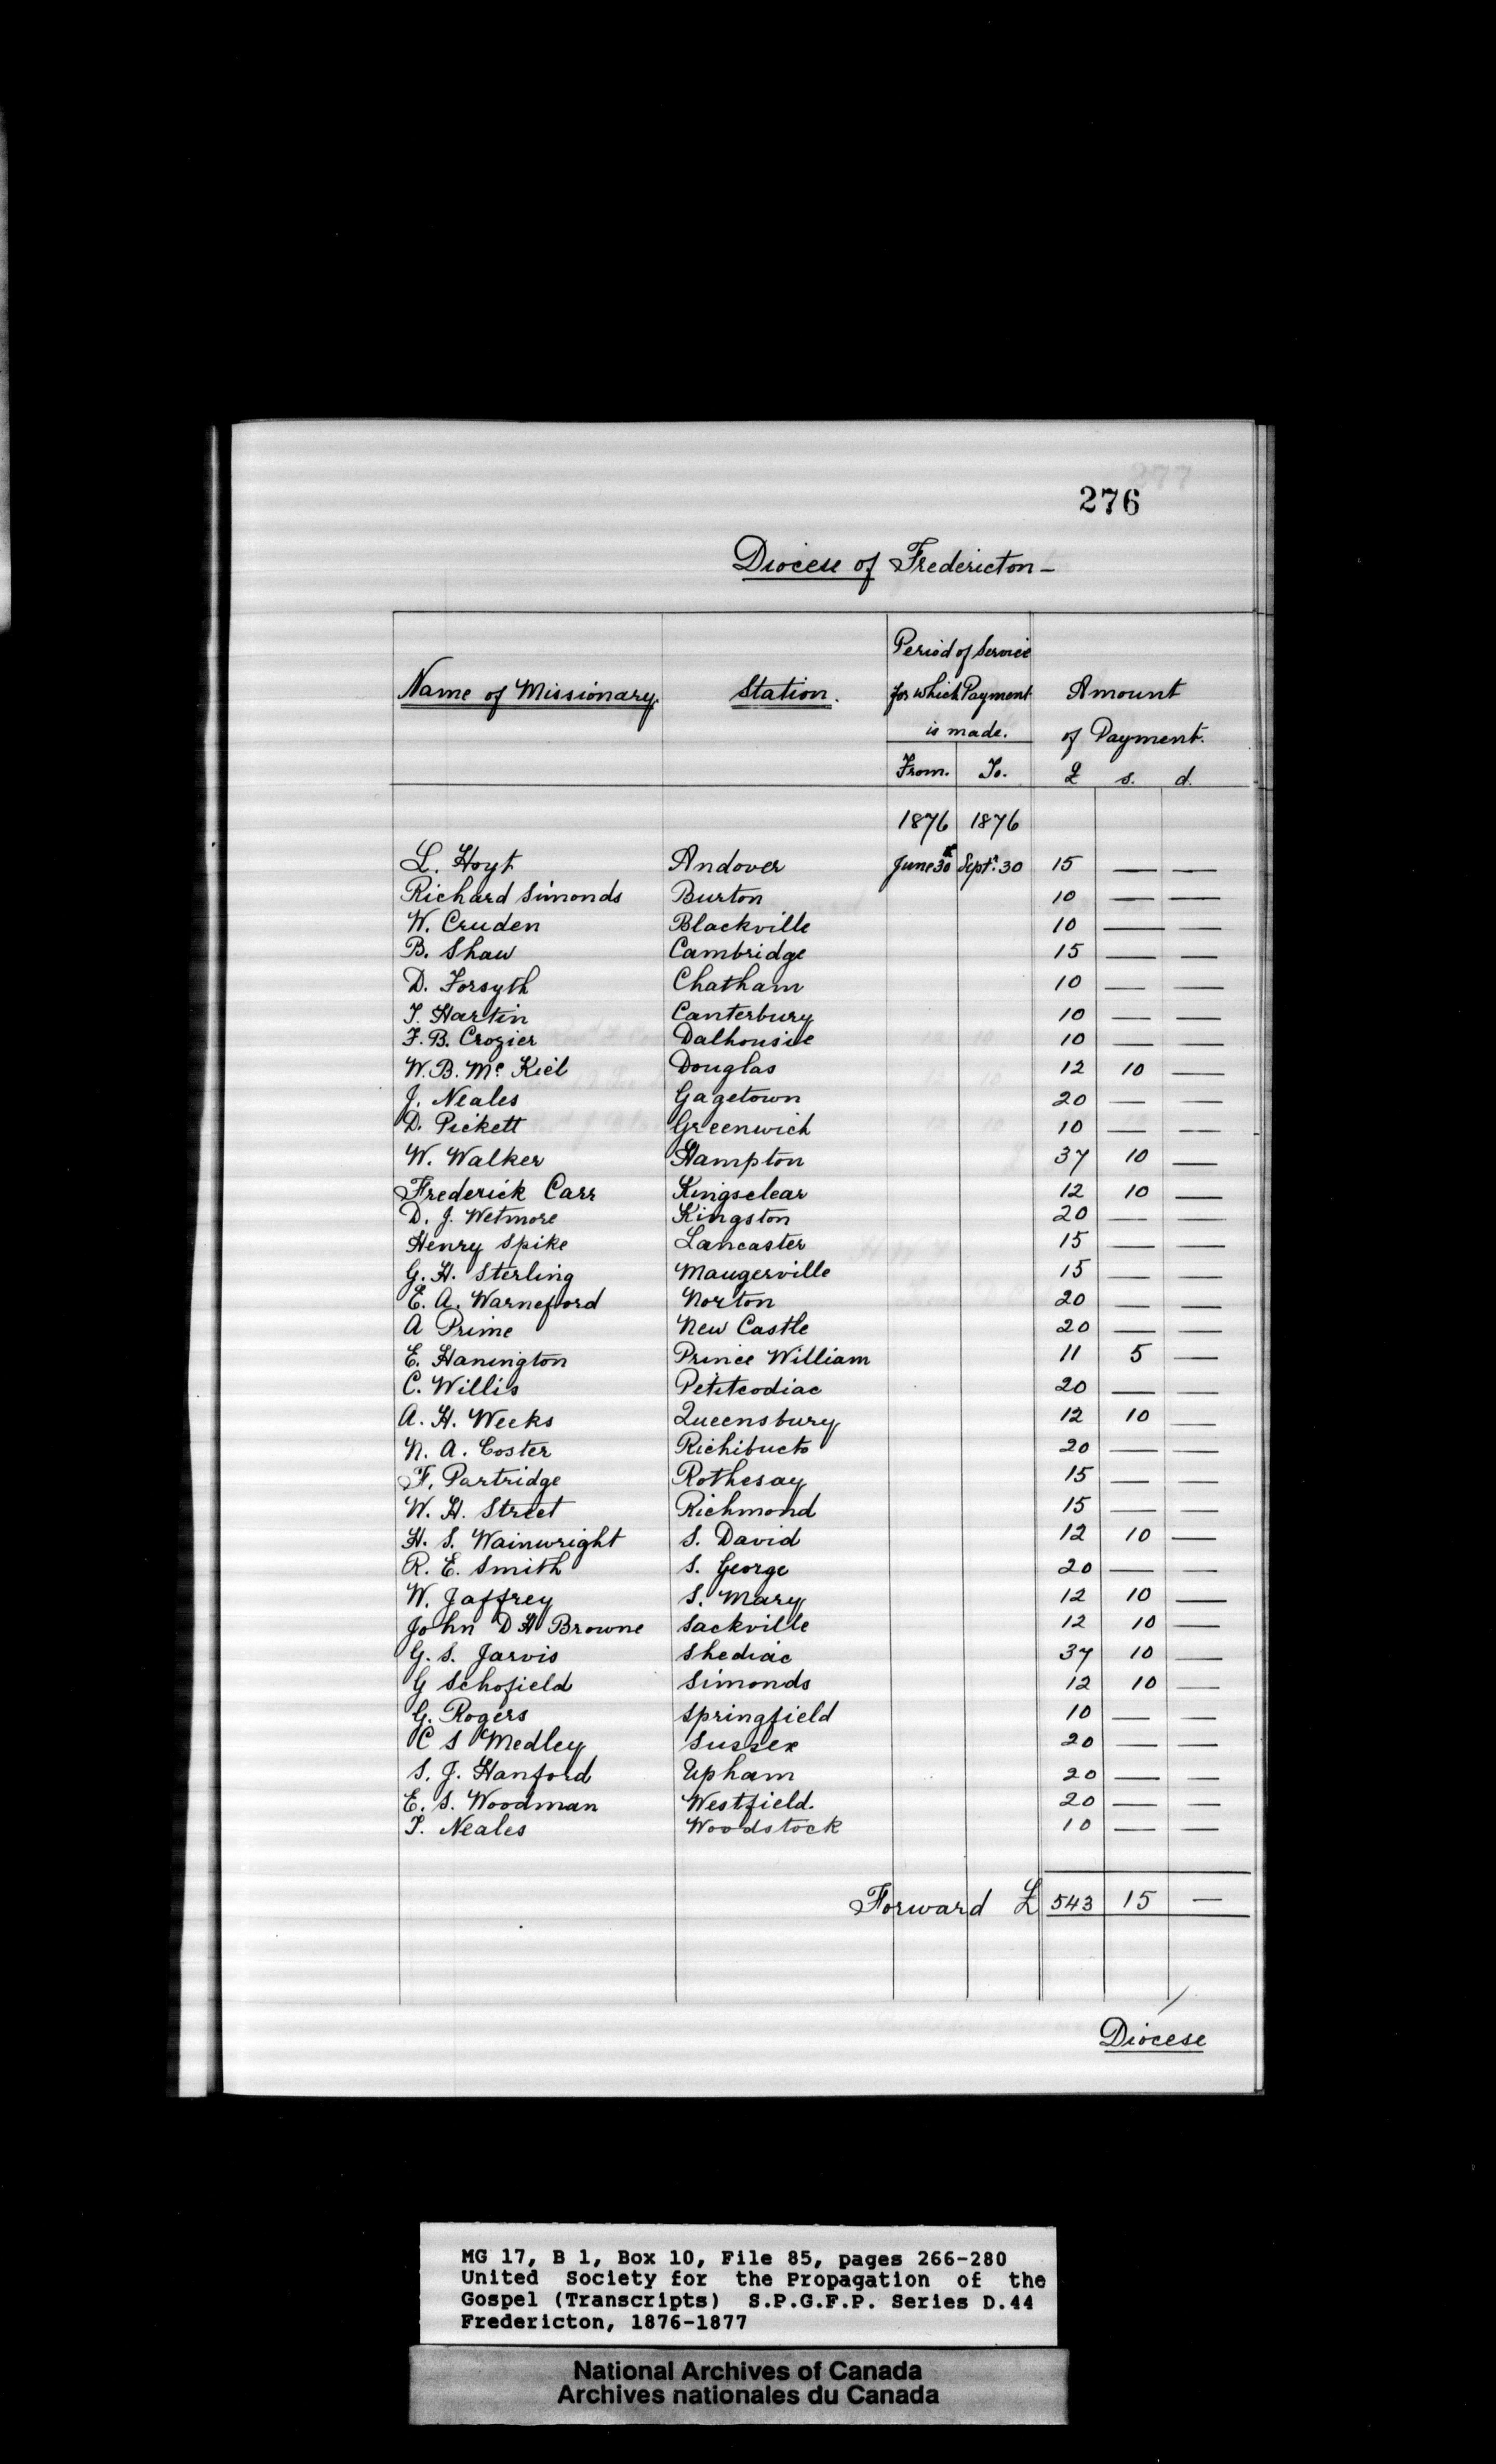 276
Diocese of Fredericton -
Name of Missionary. Station. Period of Service for which Payment is made. Amount of Payment.
From. To. £ s. d.
1876 1876
L. Hoyt Andover June 30 Sept. 30 15 — —
Richard Simonds Burton 10 — —
W. Cruden Blackville 10 — —
B. Shaw Cambridge 15 — —
D. Forsyth Chatham 10 — —
T. Hartin Canterbury 10 — —
F. B. Crozier Dalhousie 10 — —
W. B. Mc Kiel Douglas 12 10 —
J. Neales Gagetown 20 — —
D. Pickett Greenwich 10 — —
W. Walker Hampton 37 10 —
Frederick Carr Kingsclear 12 10 —
D. J. Wetmore Kingston 20 — —
Henry Spike Lancaster 15 — —
G. H. Sterling Maugerville 15 — —
E. A. Warneford Norton 20 — —
A Prime New Castle 20 — —
E. Hanington Prince William 11 5 —
C. Willis Petitcodiac 20 — —
A. H. Weeks Queensbury 12 10 —
N. A. Coster Richibucto 20 — —
F. Partridge Rothesay 15 — —
W. H. Street Richmond 15 — —
H. S. Wainwright S. David 12 10 —
R. E. Smith S. George 20 — —
W. Jaffrey S. Mary 12 10 —
John D H Browne Sackville 12 10 —
G. S. Jarvis Shediac 37 10 —
G Schofield Simonds 12 10 —
G. Rogers Springfield 10 — —
C S Medley Sussex 20 — —
S. J. Hanford Upham 20 — —
E. S. Woodman Westfield. 20 — —
T. Neales Woodstock 10 — —
Forward £ 543 15 —
Diocese
MG 17, B 1, Box 10, File 85, pages 266-280
United Society for the Propagation of the
Gospel (Transcripts) S.P.G.F.P. Series D.44
Fredericton, 1876-1877
National Archives of Canada
Archives nationales du Canada